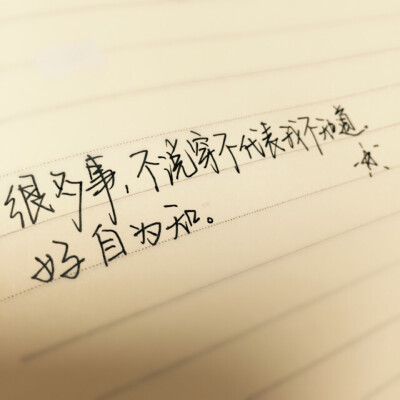 很多事，不说穿不代表我不知道.
好自为知。